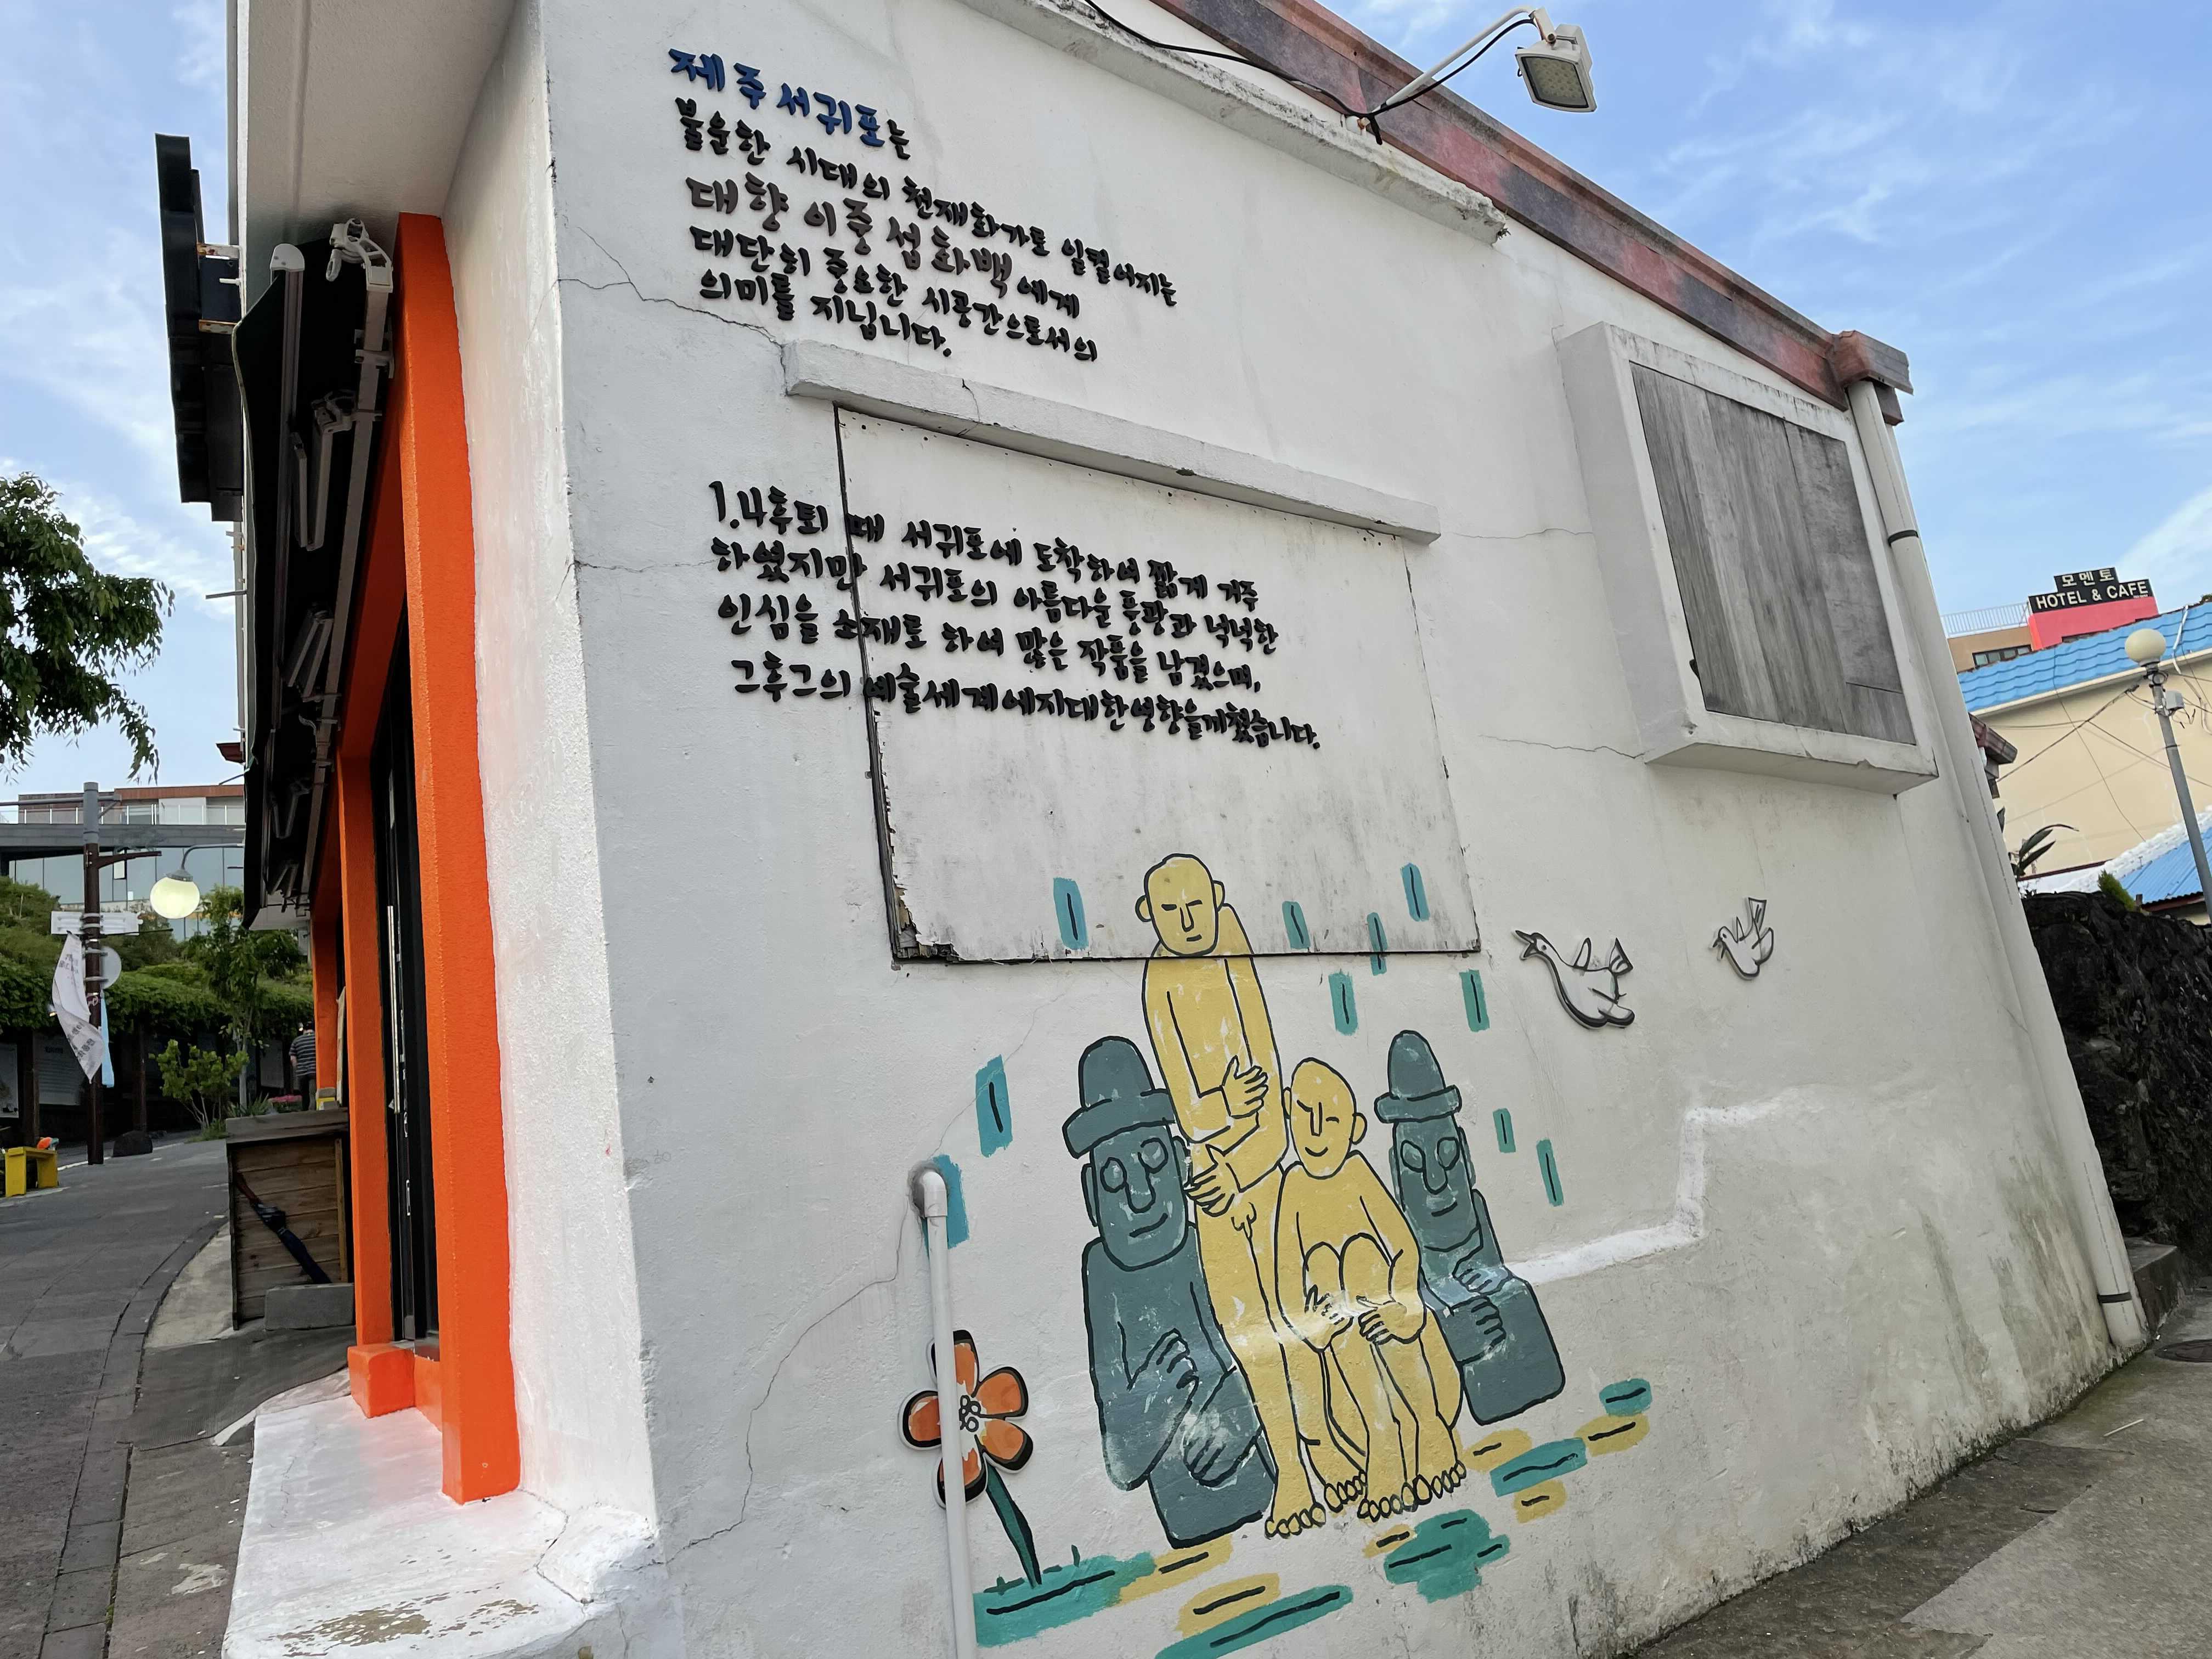 제주서귀포는
불운한 시대의 천재화가로 일컬어지는
대향 이중섭화백에게
대단히 중요한 시공간으로서의
의미를 지닙니다.
1.4후퇴 때 서귀포에 도착하여 짧게 거주
하였지만 서귀포의 아름다운 풍광과 넉넉한
인심을 소재로 하여 많은 작품을 남겼으며,
그후그의 예술세계에지대한영향을끼쳤습니다.
모멘토
HOTEL & CAFE